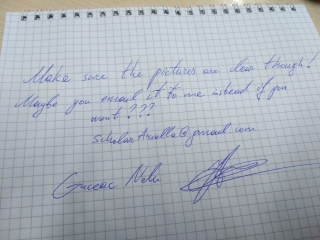 Make sure the pictures are clear though!
Maybe you email it to me instead if you
want???
scholarAriella@gmail.com